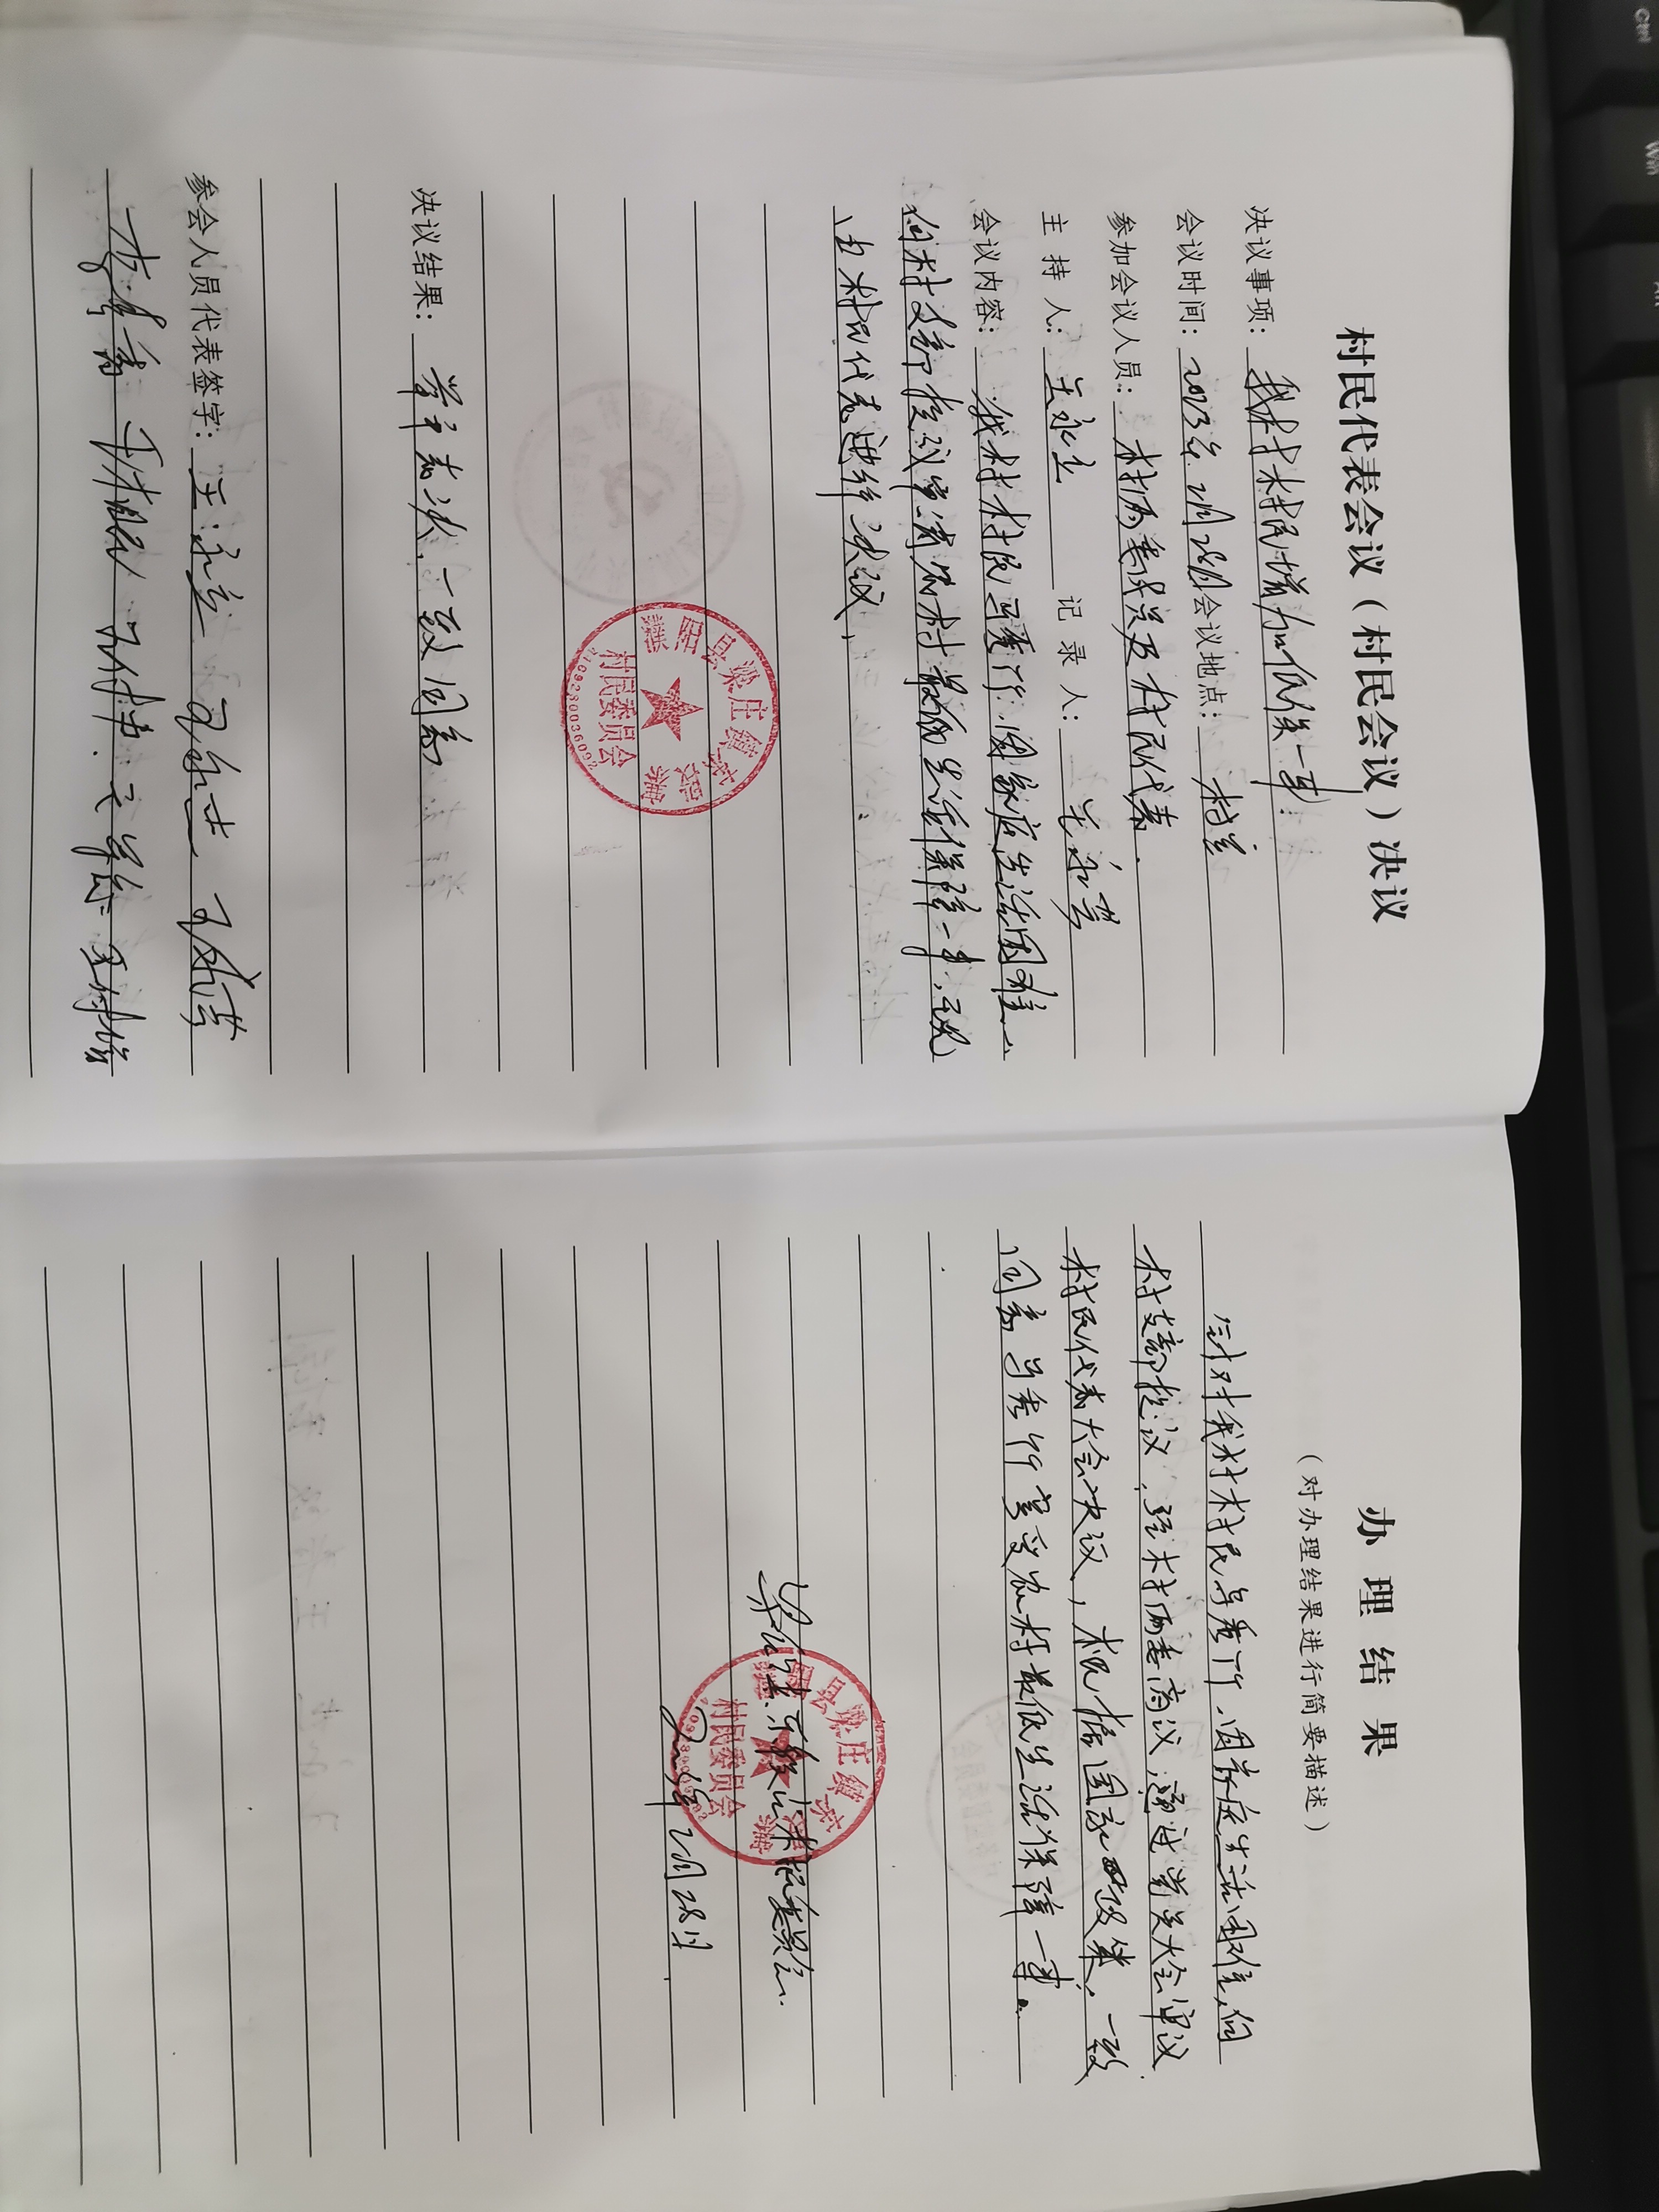 Ctrl
Win
Alt
村民代表会议（村民会议）决议
决议事项: 我村村民增加低保一事.
会议时间: 2023年.2月28日 会议地点: 村室
参加会议人员: 村两委成员及村民代表.
主 持 人: 王永立 记 录 人: 王永芸
会议内容: 我村村民马秀竹.因家庭生活困难、
向村支部提议申请农村最低生活保障一事,现
由村民代表进行决议,
濮阳县梁庄镇东段寨
村民委员会
4109280036092
决议结果: 举手表决.一致同意
参会人员代表签字: 王永立 王永杰 王永芸
李秀香 王相民
办 理 结 果
（对办理结果进行简要描述）
针对我村村民马秀竹.因家庭生活困难,向
村支部提议,经村两委商议,通过党员大会审议
村民代表大会决议,根据国家政策,一致
同意马秀竹享受农村最低生活保障一事。
阳县梁庄镇东
寨
村民委员会
村民委员会.
2023年2月28日.